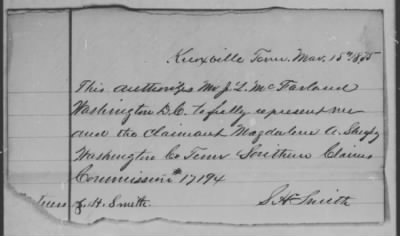 Knoxville Tenn. Mar. 18th 1875
This authorizes Mr J. L. McFarland
Washington D.C. to fully represent me
and the claimant Magdarlene A. Sherfy
Washington Co Tenn Southern Claims
Commission # 17194
S H Smith
of H. Smith.